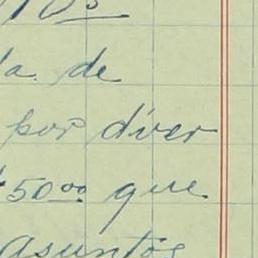 a de
por diver
50.00 que
asuntos